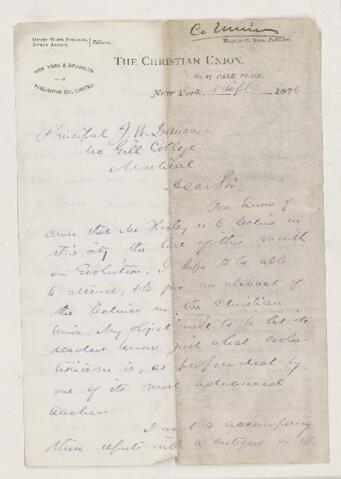 Henry Ward Beecher,
Lyman Abbott, } Editors.
Ch Union
Horatio C. King, Publisher.
New York & Brooklyn
Publishing Co., Limited.
The Christian Union,
No. 27 Park Place.
New York, 5 Sept 1876
Principal J. W. Dawson
Mc Gill College
Montreal.
Dear Sir
You know of
course that Mr Huxley is to lecture in
this city the last of this month
on Evolution. I hope to be able
to attend, & to give an abstract of
the lectures in the Christian
Union. My object will be to let its
readers know just what evolu-
tionism is, as propounded by
one of its most advanced
teachers.
I want to accompany
these reports with a critique on the